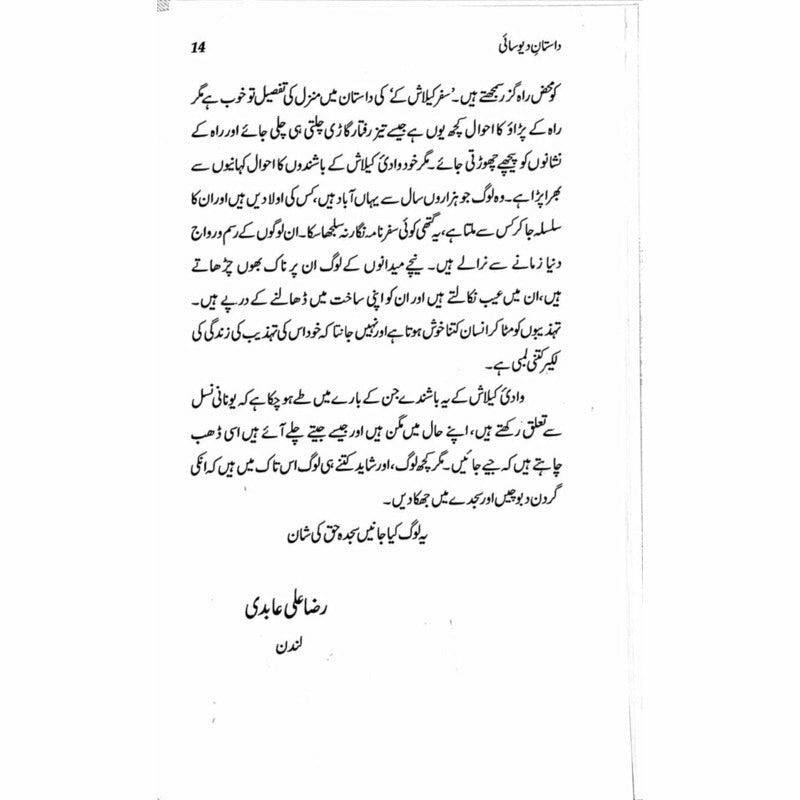 داستانِ دیوسائی 14
کو محض راہ گزر سمجھتے ہیں۔ ’سفر کیلاش کے‘ کی داستان میں منزل کی تفصیل تو خوب ہے مگر
راہ کے پڑاؤ کا احوال کچھ یوں ہے جیسے تیز رفتار گاڑی چلتی ہی چلی جائے اور راہ کے
نشانوں کو پیچھے چھوڑتی جائے۔ مگر خود وادیٔ کیلاش کے باشندوں کا احوال کہانیوں سے
بھرا پڑا ہے۔ وہ لوگ جو ہزاروں سال سے یہاں آباد ہیں، کس کی اولادیں ہیں اور ان کا
سلسلہ جا کر کس سے ملتا ہے، یہ گتھی کوئی سفرنامہ نگار نہ سلجھا سکا۔ ان لوگوں کے رسم و رواج
دنیا زمانے سے نرالے ہیں۔ نیچے میدانوں کے لوگ ان پر ناک بھوں چڑھاتے
ہیں، ان میں عیب نکالتے ہیں اور ان کو اپنی ساخت میں ڈھالنے کے درپے ہیں۔
تہذیبوں کو مٹا کر انسان کتنا خوش ہوتا ہے اور نہیں جانتا کہ خود اس کی تہذیب کی زندگی کی
لکیر کتنی لمبی ہے۔
وادیٔ کیلاش کے یہ باشندے جن کے بارے میں طے ہو چکا ہے کہ یونانی نسل
سے تعلق رکھتے ہیں، اپنے حال میں مگن ہیں اور جیسے جیتے چلے آئے ہیں اسی ڈھب
چاہتے ہیں کہ جیے جائیں۔ مگر کچھ لوگ، اور شاید کتنے ہی لوگ اس تاک میں ہیں کہ انکی
گردن دبوچیں اور سجدے میں جھکا دیں۔
یہ لوگ کیا جانیں سجدہ حق کی شان
رضا علی عابدی
لندن